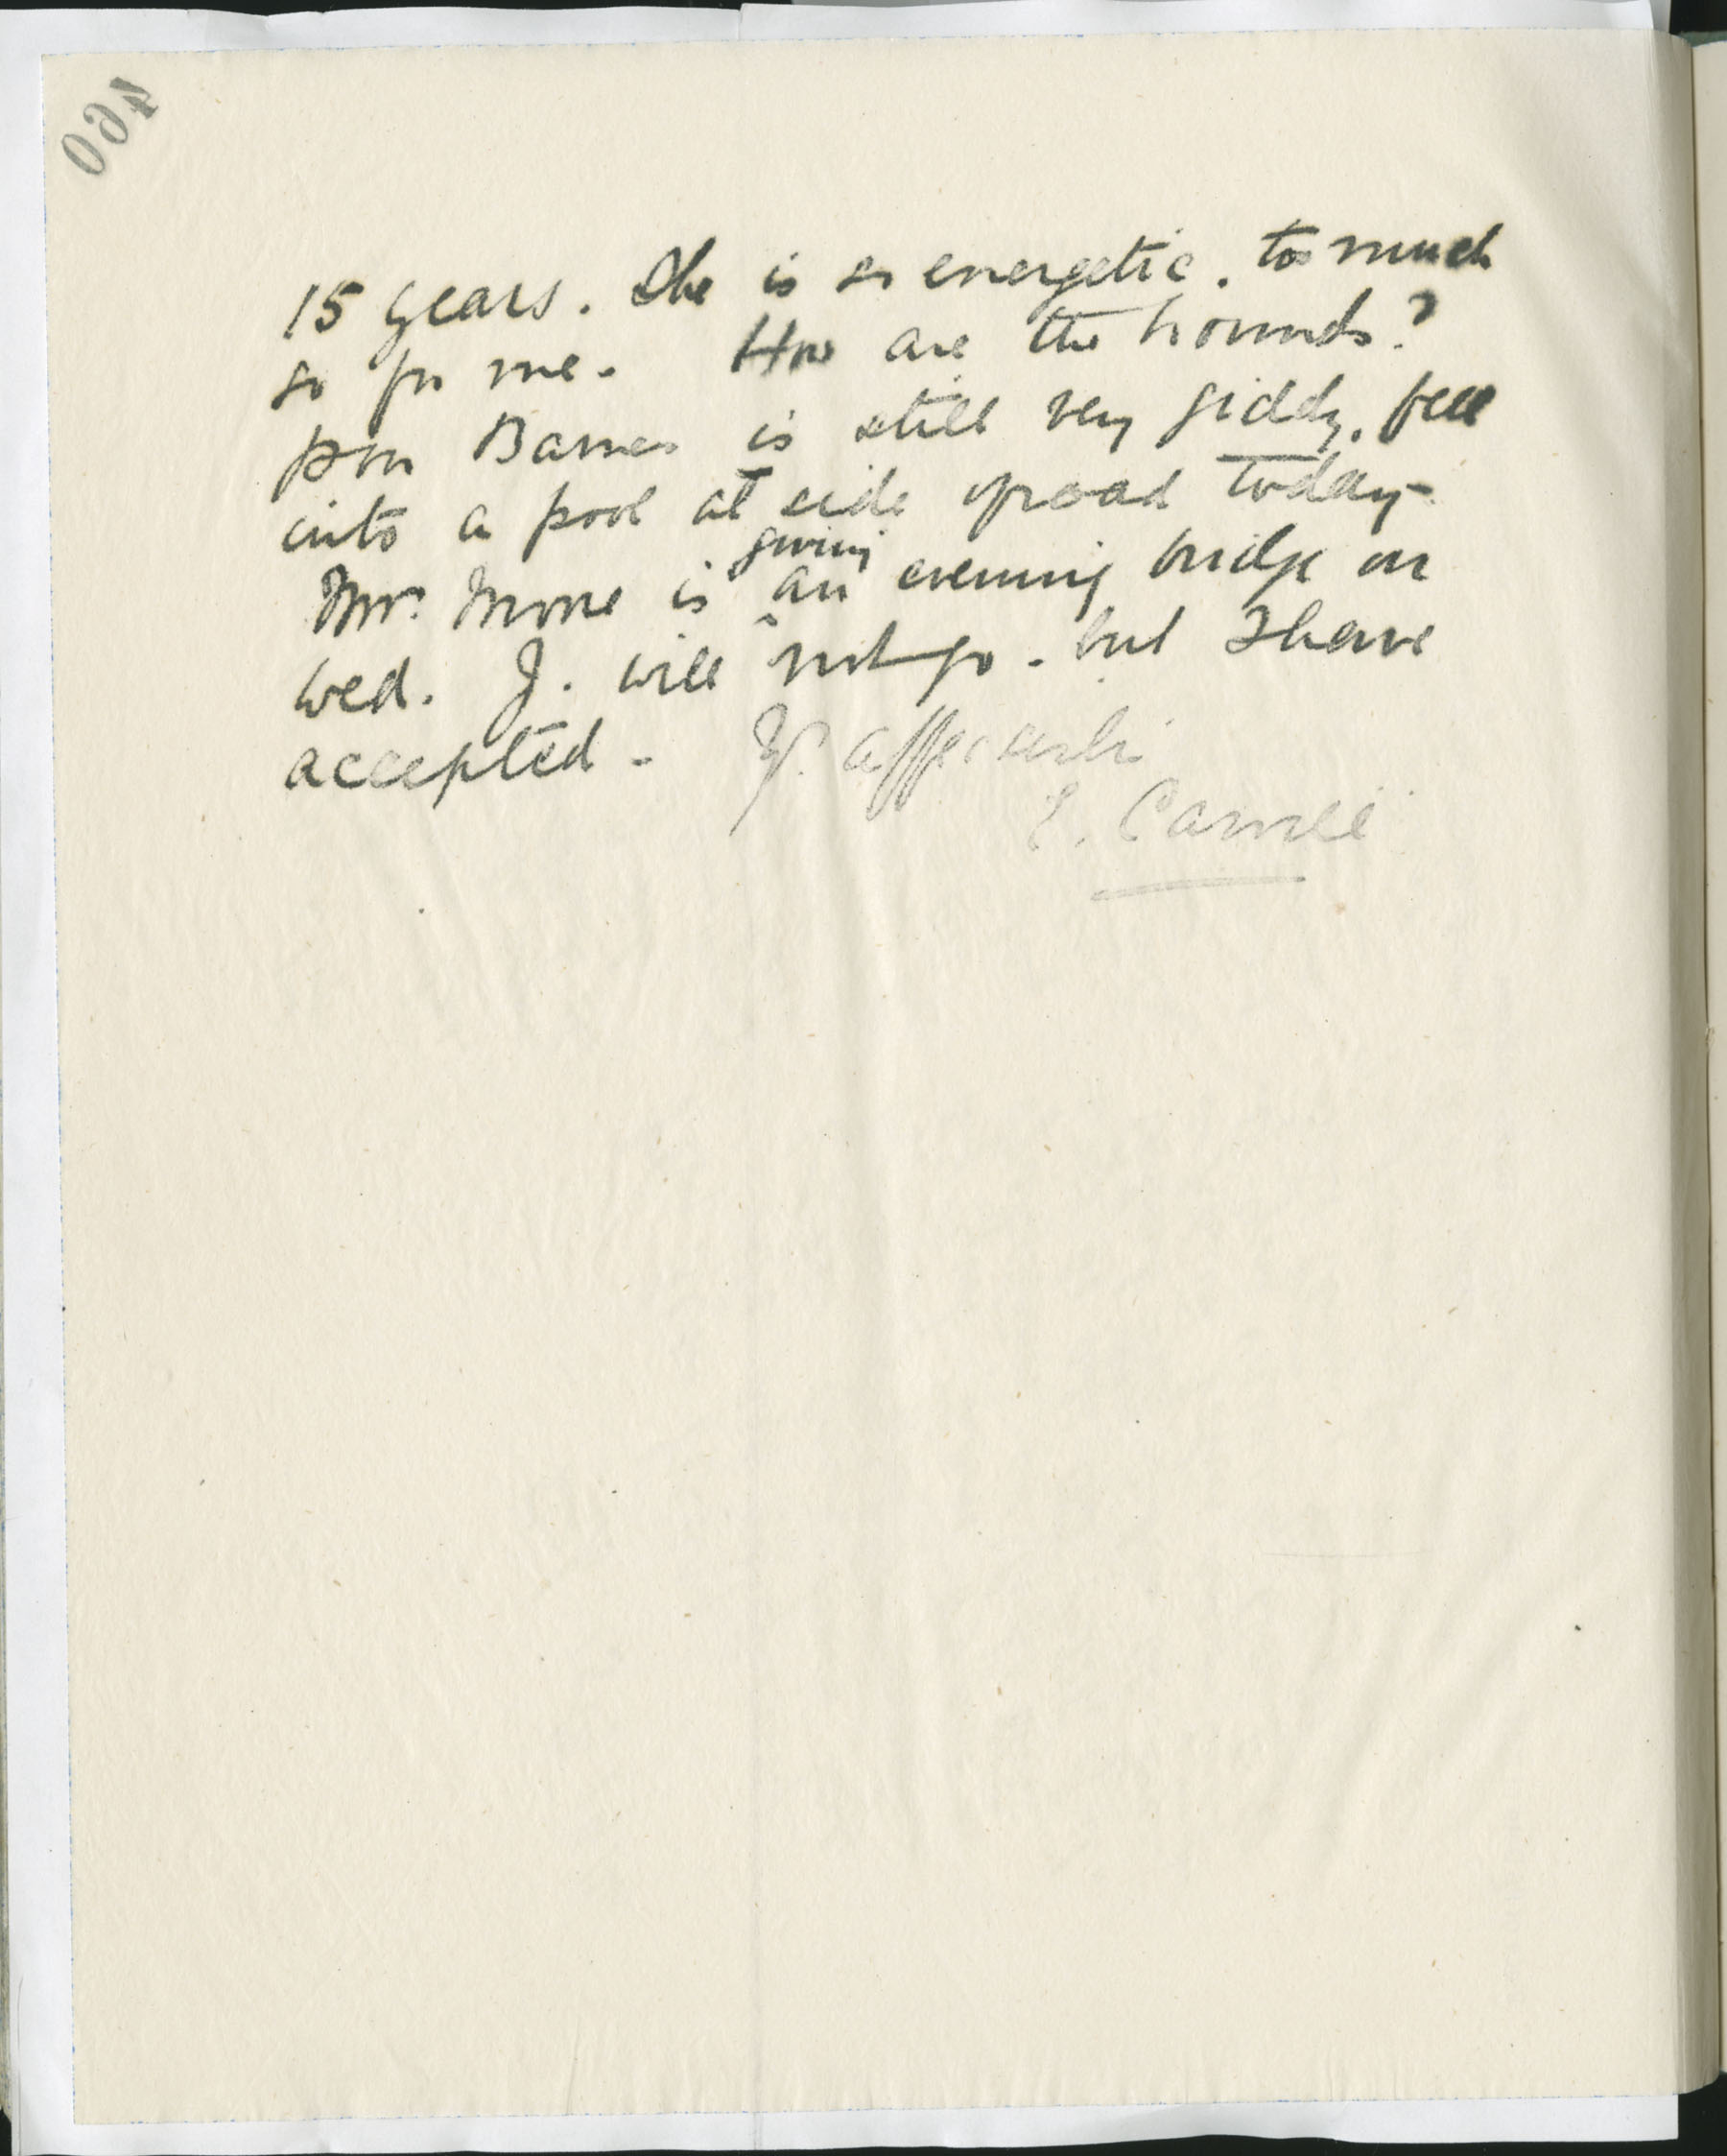 460
15 years. She is so energetic. too much
so for me. How are the hounds?
poor Barnes is still very giddy. fell
into a pool at side of road today-
giving
Mrs. Morse is an evening bridge on
Wed. J. will not go - but I have
accepted - Yr. affectionate
E.